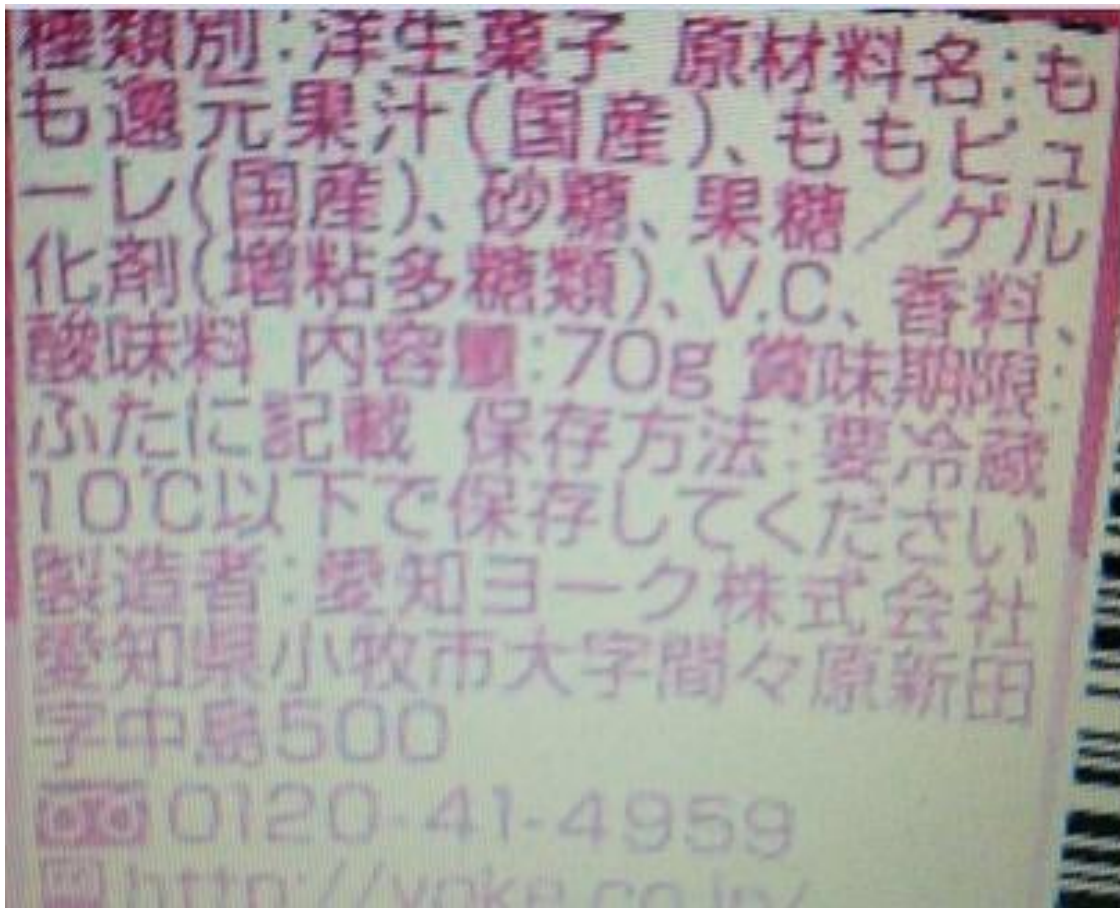 種類別:洋生菓子 原材料名:も
も還元果汁(国産)、ももピュ
ーレ(国産)、砂糖、果糖/ゲル
化剤(増粘多糖類)、V.C、香料、
酸味料 内容量:70g 賞味期限:
ふたに記載 保存方法:要冷蔵
10℃以下で保存してください
製造者:愛知ヨーク株式会社
愛知県小牧市大字間々原新田
字中島500
0120-41-4959
http://yoke.co.jp/